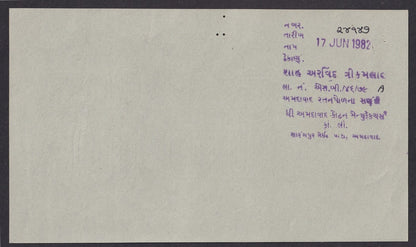 નંબર. ૨૪૧૪૭
તારીખ
નામ 17 JUN 1982
ઠેકાણુ.
શાહ અરવિંદ ત્રીકમલાલ
લા. નં. એસ.બી./૪૬/૭૯ A
અમદાવાદ રતનપોળના
ધી અમદાવાદ કોટન મેન્યુફેક્ચર્સ
કાં. લી.
સારંગપુર અમદાવાદ